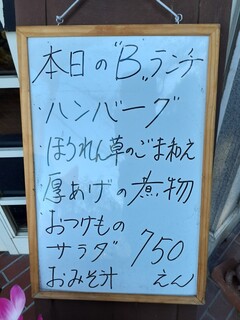 本日の"B"ランチ
・ハンバーグ
・ほうれん草のごま和え
・厚あげの煮物
・おつけもの
サラダ 750
おみそ汁 えん